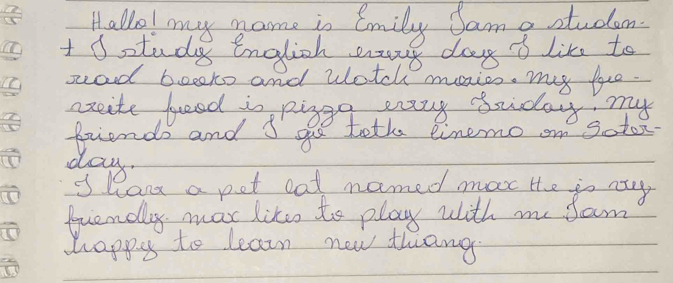 Hallo! my name is Emily Iam a studen-
t I study English every day I like to
read books and Watch movies. my fvo-
vreite food is pizza every Friday. my
friends and I go toths Cinemo on Sater-
day.
I have a pet cat named max He is very
friendly. max likes to play With me Iam
happy to learn new thuang.